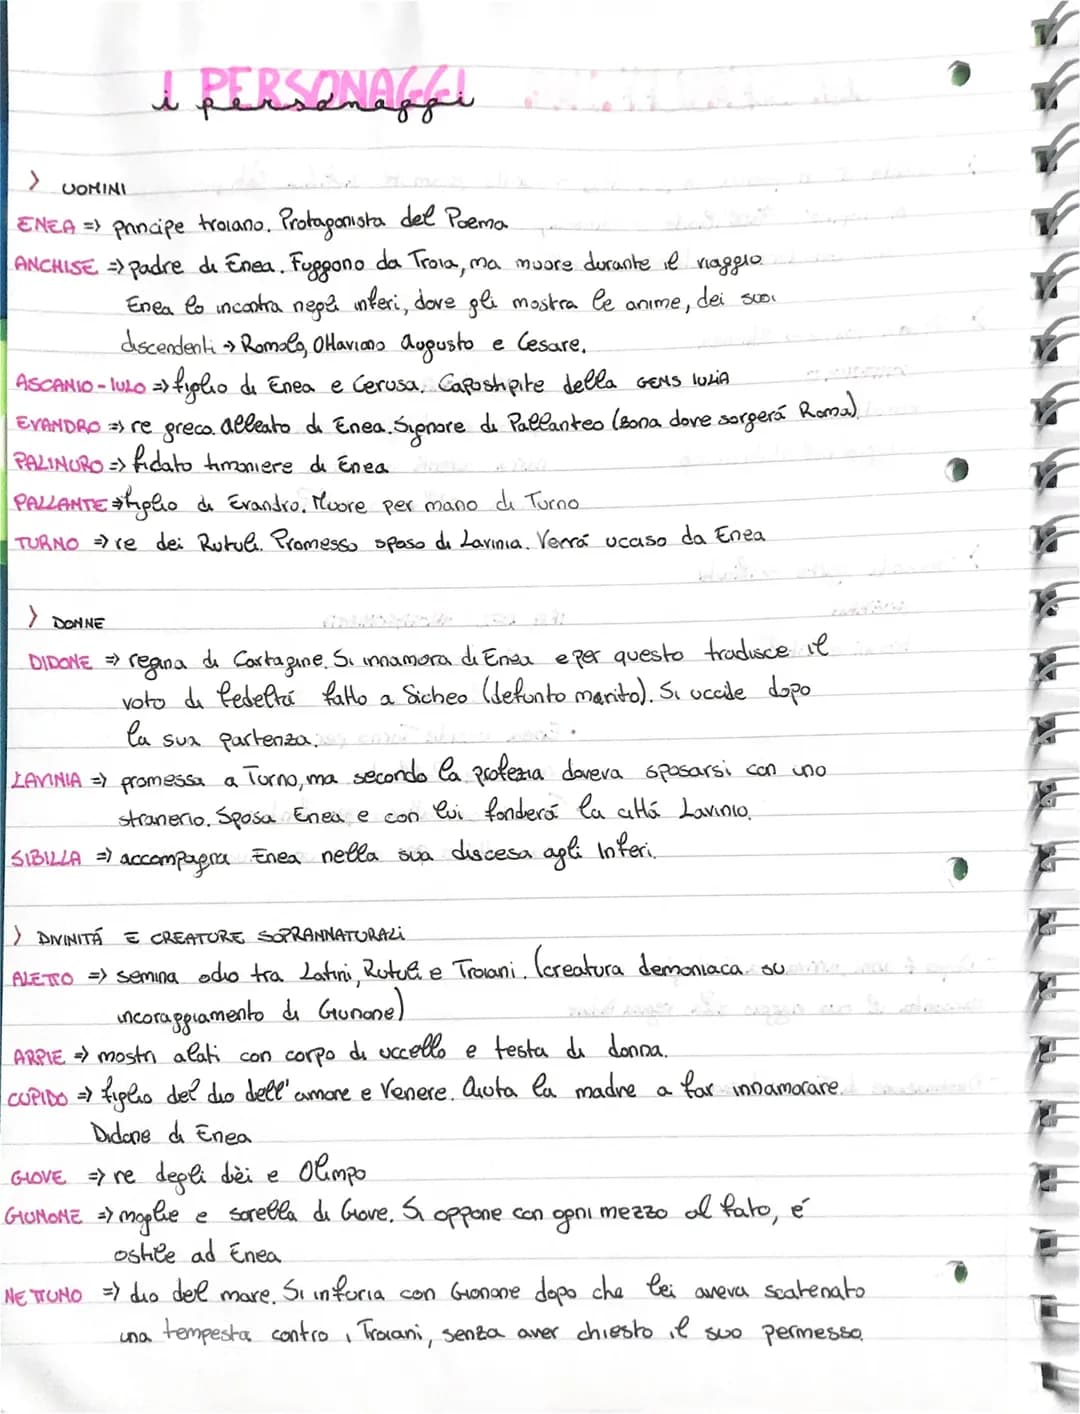 I PERSONAGGI
i personaggi
> UOMINI
ENEA => principe troiano. Protagonista del Poema
ANCHISE => padre di Enea. Fuggono da Troia, ma muore durante il viaggio
Enea lo incontra negli inferi, dove gli mostra le anime, dei suoi
discendenti → Romolo, Ottaviano Augusto e Cesare.
ASCANIO-IULO => figlio di Enea e Cerusa. Capostipite della GENS IULIA
EVANDRO => re greco. alleato di Enea. Signore di Pallanteo (zona dove sorgerá Roma)
PALINURO => fidato timoniere di Enea
PALLANTE => figlio di Evandro. Muore per mano di Turno
TURNO => re dei Rutuli. Promesso sposo di Lavinia. Verrá ucciso da Enea
> DONNE
DIDONE => regina di Cartagine. Si innamora di Enea e per questo tradisce il
voto di fedeltá fatto a Sicheo (defunto marito). Si uccide dopo
la sua partenza.
LAVINIA => promessa a Turno, ma secondo la profezia doveva sposarsi con uno
straniero. Sposa Enea e con lui fonderá la cittá Lavinio.
SIBILLA => accompagna Enea nella sua discesa agli Inferi.
> DIVINITÁ E CREATURE SOPRANNATURALI
ALETTO => semina odio tra Latini, Rutuli e Troiani. (creatura demoniaca su
incoraggiamento di Giunone)
ARPIE => mostri alati con corpo di uccello e testa di donna.
CUPIDO => figlio del dio dell'amore e Venere. Aiuta la madre a far innamorare
Didone di Enea
GIOVE => re degli dèi e Olimpo
GIUNONE => moglie e sorella di Giove. Si oppone con ogni mezzo al fato, é
ostile ad Enea
NETTUNO => dio del mare. Si infuria con Giunone dopo che lei aveva scatenato
una tempesta contro i Troiani, senza aver chiesto il suo permesso